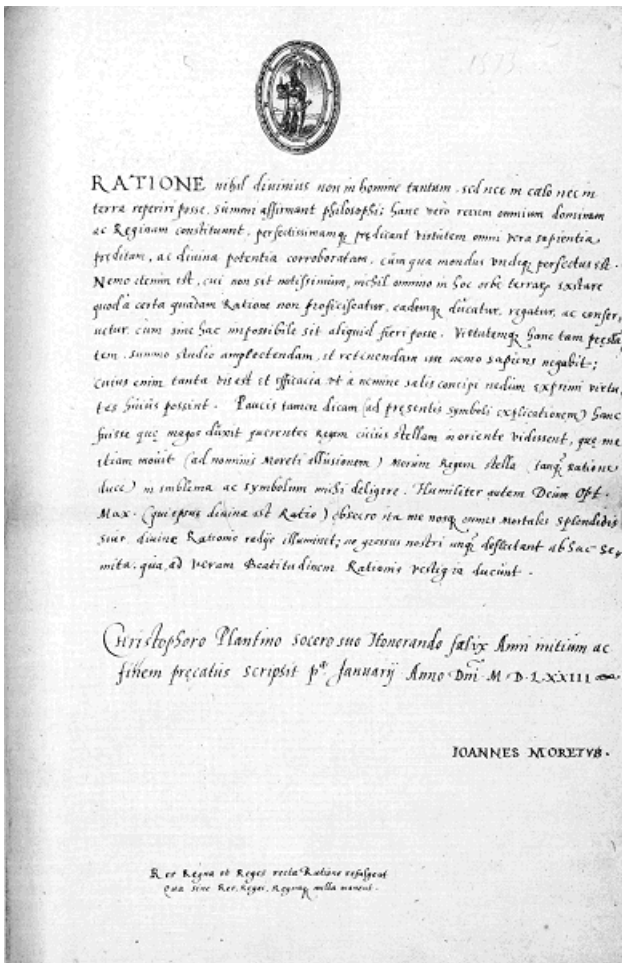 1573
RATIONE nihil diuinius non in homine tantum, sed nec in cælo nec in
terra reperiri posse, summi affirmant philosophi; hanc vero rerum omnium dominam
ac Reginam constituunt, perfectissimamq; predicant virtutem omni vera sapientia
preditam, ac diuina potentia corroboratam, cum qua mondus vndiq; perfectus est.
Nemo etenim est, cui non sit notissimum, nichil omnino in hoc orbe terraru existare
quod à certa quadam Ratione non proficiscatur, eademq; ducatur, regatur, ac conser,
uetur, cum sine hac impossibile sit aliquid fieri posse. Virtutemq; hanc tam pręsta,
tem, summo studio amplectendam, et retinendam esse nemo sapiens negabit;
cuius enim tanta vis est et efficacia vt a nemine satis concipi nedum exprimi virtu,
tes huius possint. Paucis tamen dicam (ad pręsentis symboli explicationem) hanc
fuisse quę magos duxit querentes Regem cuius stellam in oriente vidissent, quę me
etiam mouit (ad nominis Moreti allusionem) Morum Regem stella (tanq; ratione
duce) in emblema ac symbolum michi deligere. Humiliter autem Deum Opt.
Max. (qui ipsus diuina est Ratio) obsecro ita me nosq; omnes mortales splendidis
suę diuinę Rationis radijs illuminet; ne gressus nostri unq; deflectant ab hac se,
mita, qua, ad veram Beatitudinem Rationis vestigia ducunt.
Christophoro Plantino socero suo Honorando fælix Anni initium ac
finem pręcatus scripsit pª. Januarij Anno Dnī. M. D. LXXIII
IOANNES MORETVS.
Rex Regna et Reges recta Ratione refulgent
Qua sine Rex, Reges, Regnaq; nulla manent.